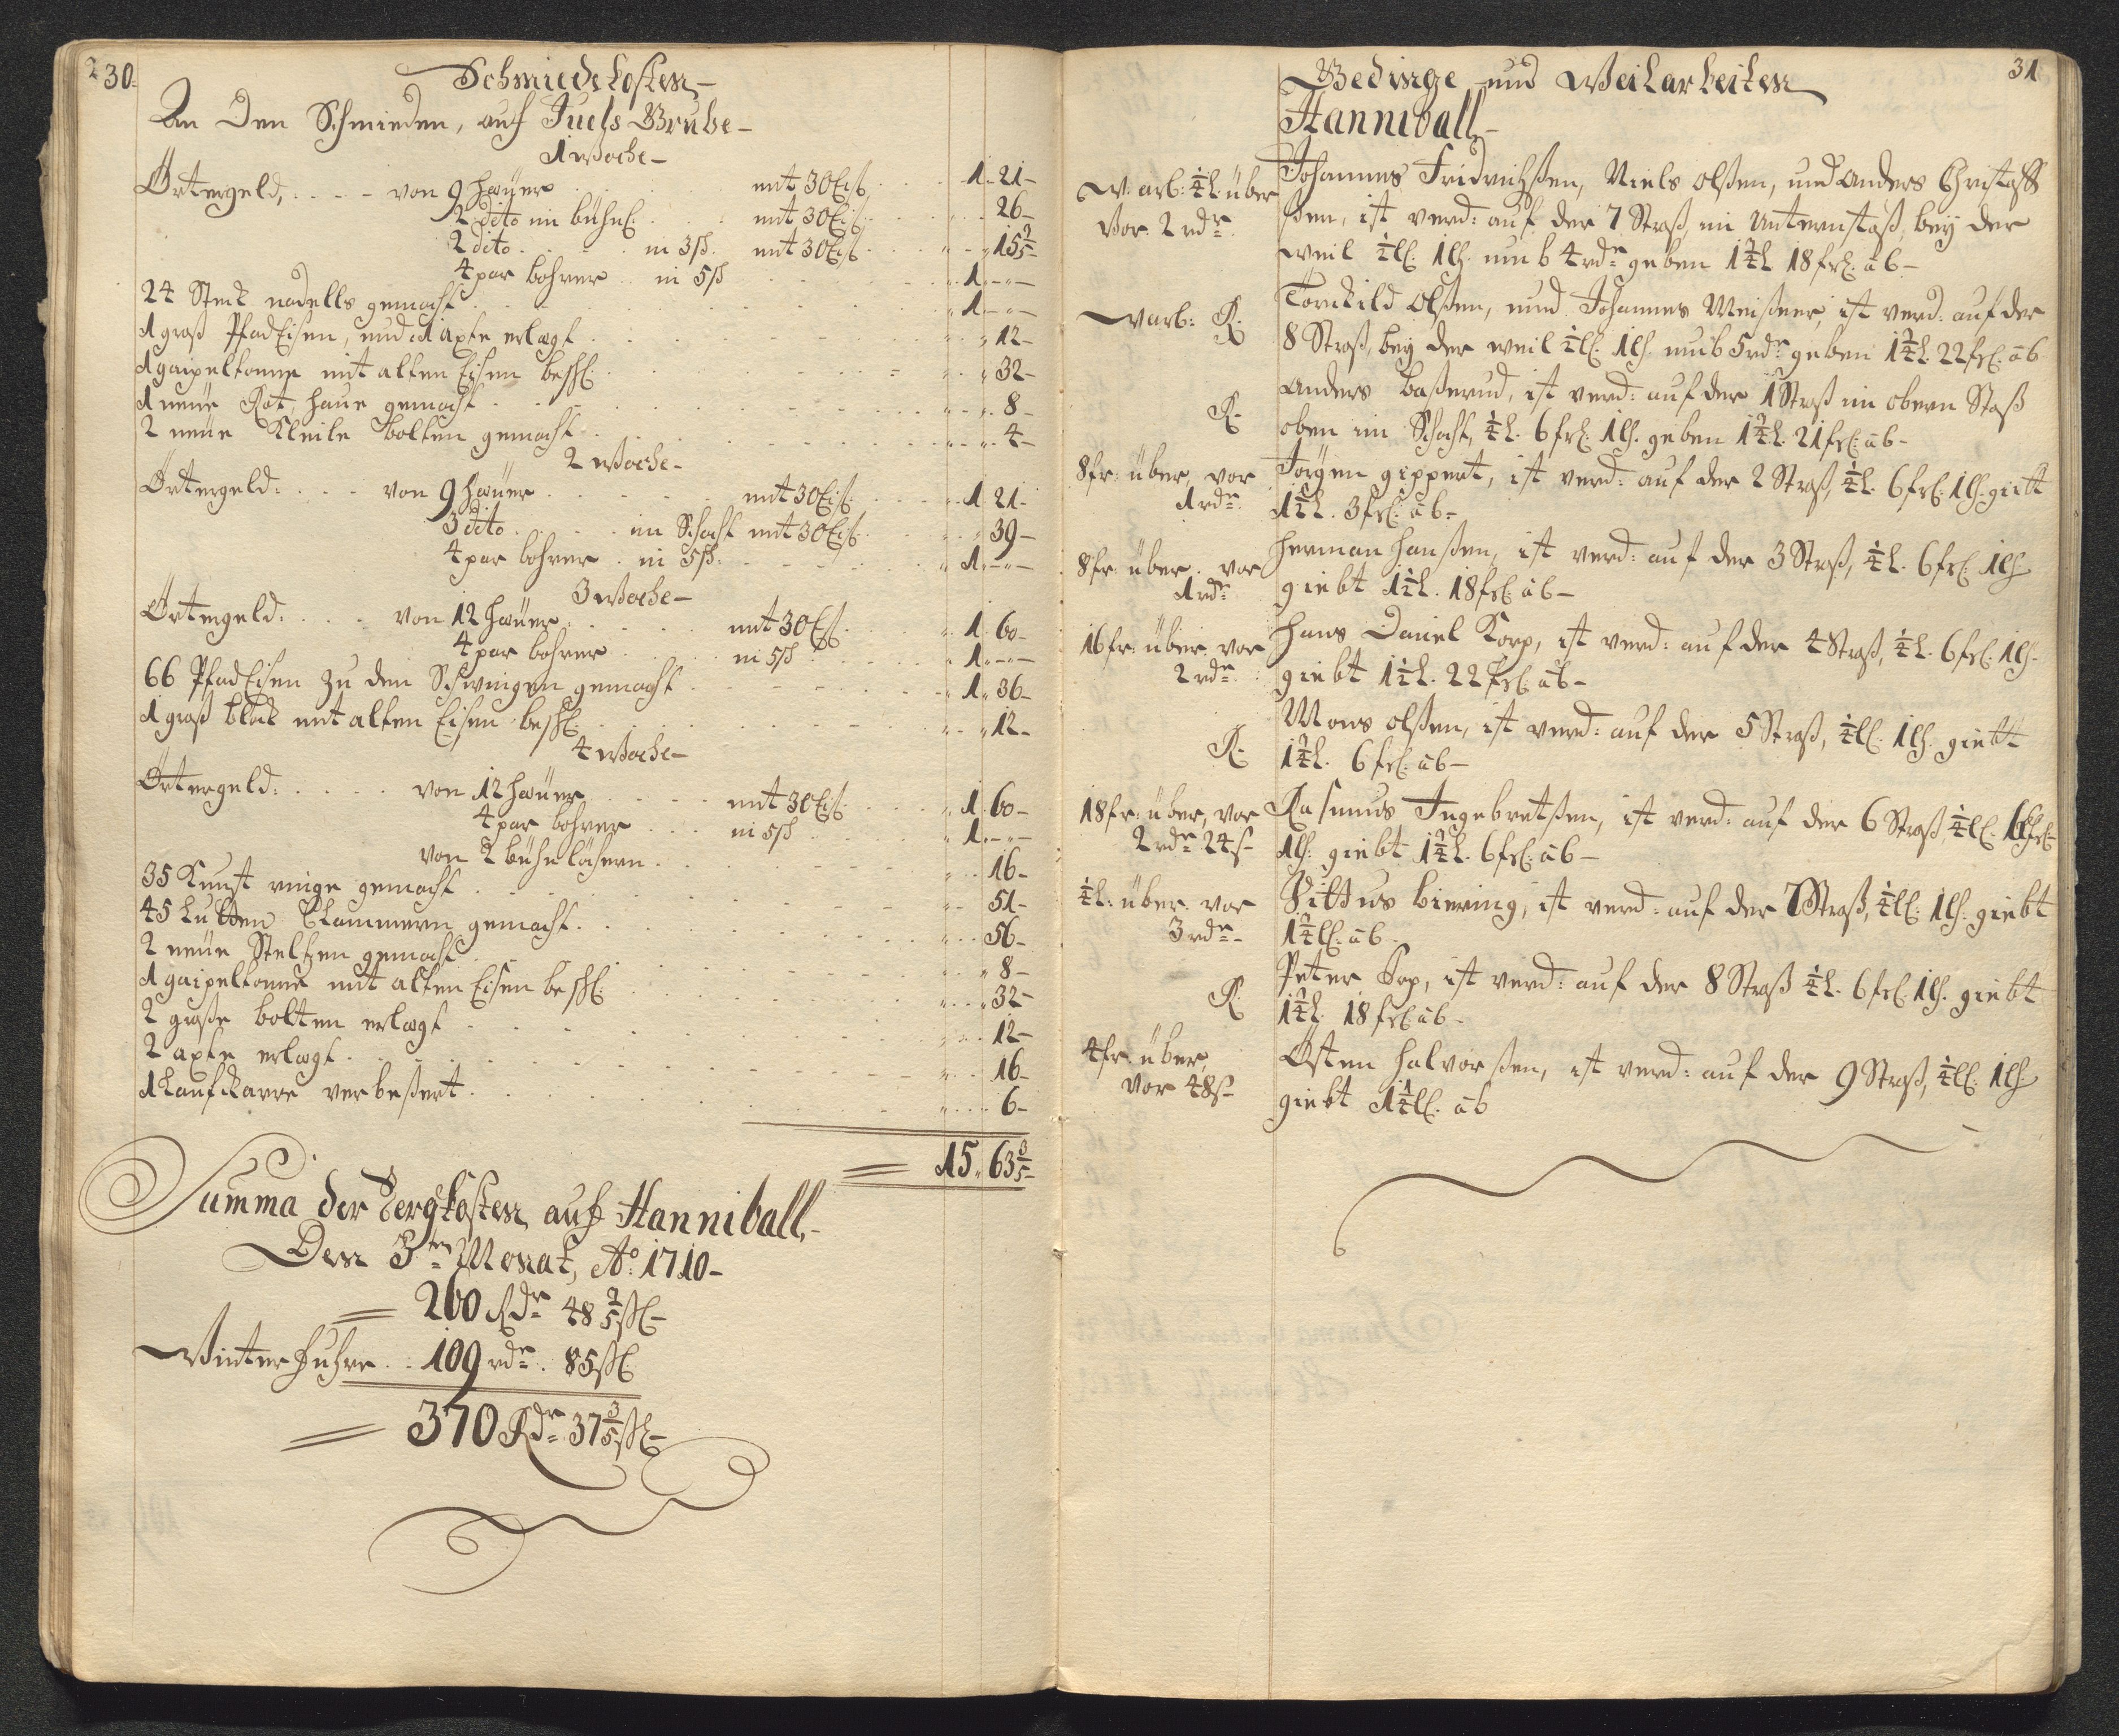 230.
Schmiede Kosten
An den Schmieden, auf Fuchs Grube
1 Woche
Örtergeld, von 9 häuer mit 30 Eiß 1 21
2 dito im bühnl: mit 30 Eiß 26
2 dito in 3ß mit 30 Eiß 15 3/5
4 par bohrer in 5ß 1
24 Stück nadells gemacht 1
1 groß Pfad Eisen, und 1 axte erlegt 12
1 gaipeltonne mit alten Eisen beschl: 32
1 neüe haue gemacht 8
2 neüe bolten gemacht 4
2 Woche
Örtergeld: von 9 häuer mit 30 Eiß 1 21
3 dito im Schacht mit 30 Eiß 39
4 par bohrer in 5ß 1
3 Woche
Örtergeld: von 12 häuer mit 30 Eiß 1 60
4 par bohrer in 5ß 1
66 Pfad Eisen zu den Schwingen gemacht 1 36
1 groß block mit alten Eisen beschl: 12
4 Woche
Örtergeld: von 12 häuer mit 30 Eiß 1 60
4 par bohrer in 5ß 1
von 2 bühnlöchern 16
35 Kunst ringe gemacht 51
45 Lutten Clammern gemacht 56
2 neüe Steltzen gemacht 8
1 gaipeltonne mit alten Eisen beschl: 32
2 große bolten erlegt 12
2 axte erlegt 16
1 Laufkarre verbeßert 6
15 63 3/5
Summa der Bergkosten auf Hanniball,
Den 3ten Monat, Ao: 1710
= 260 Rdr 48 3/5 ßl
Winter fuhre 109 rdr 85 ßl
= 370 Rdr 37 3/5 ßl
31
Gedinge und Weilarbeiten
Hanniball
W: arb: 1/4 L über Johannes Fridrichßen, Niels Olßen, und Anders Christoff
Vor 2 rdr ßen, ist verd: auf der 7 Straß, im Unternstoß, bey der
weil 1/2 ll: 1 lh: umb 4 rdr geben 1 3/4 L 18 frl: ab
W arb: R: Torkild Olßen, und Johannes Meißner, ist verd: auf der
8 Straß, bey der weil 1/2 ll: 1 lh: umb 5 rdr geben 1 3/4 L: 22 frl: ab
R: Anders Baßerud, ist verd: auf der 1 Straß im obern Stoß
oben im Schacht, 1/4 L: 6 frl: 1 lh: geben 1 3/4 L: 21 frl: ab
8 fr: über, vor Jorgen gippert, ist verd: auf der 2 Straß, 1/4 L: 6 frl: 1 lh: giebt
1 rdr 1 1/2 L. 3 frl: ab
8 fr: über vor Herman Hanßen, ist verd: auf der 3 Straß, 1/4 L. 6 frl: 1 lh
1 rdr giebt 1 1/2 L. 18 frl: ab
16 fr: über vor Hans Daniel Korp, ist verd: auf der 4 Straß, 1/4 L. 6 frl: 1 lh.
2 rdr giebt 1 1/2 L. 22 frl: ab
Mons Olßen, ist verd: auf der 5 Straß, 1/2 ll: 1 lh: giebt
R: 1 3/4 L. 6 frl: ab
18 fr: über, vor Rasmus Ingebretßen, ist verd: auf der 6 Straß, 1/4 ll:
2 rdr 24 ß 1 lh: giebt 1 3/4 L. 6 frl: ab
1/4 L: über vor Vittus Biering, ist verd: auf der 7 Straß, 1/2 ll: 1 lh: giebt
3 rdr 1 3/4 ll: ab
Peter Top, ist verd: auf der 8 Straß 1/4 L. 6 frl: 1 lh. giebt
R: 1 3/4 L 18 frl: ab
4 fr: über, Östen Halvorßen, ist verd: auf der 9 Straß, 1/2 ll: 1 lh:
vor 48 ß giebt 1 1/4 ll: ab